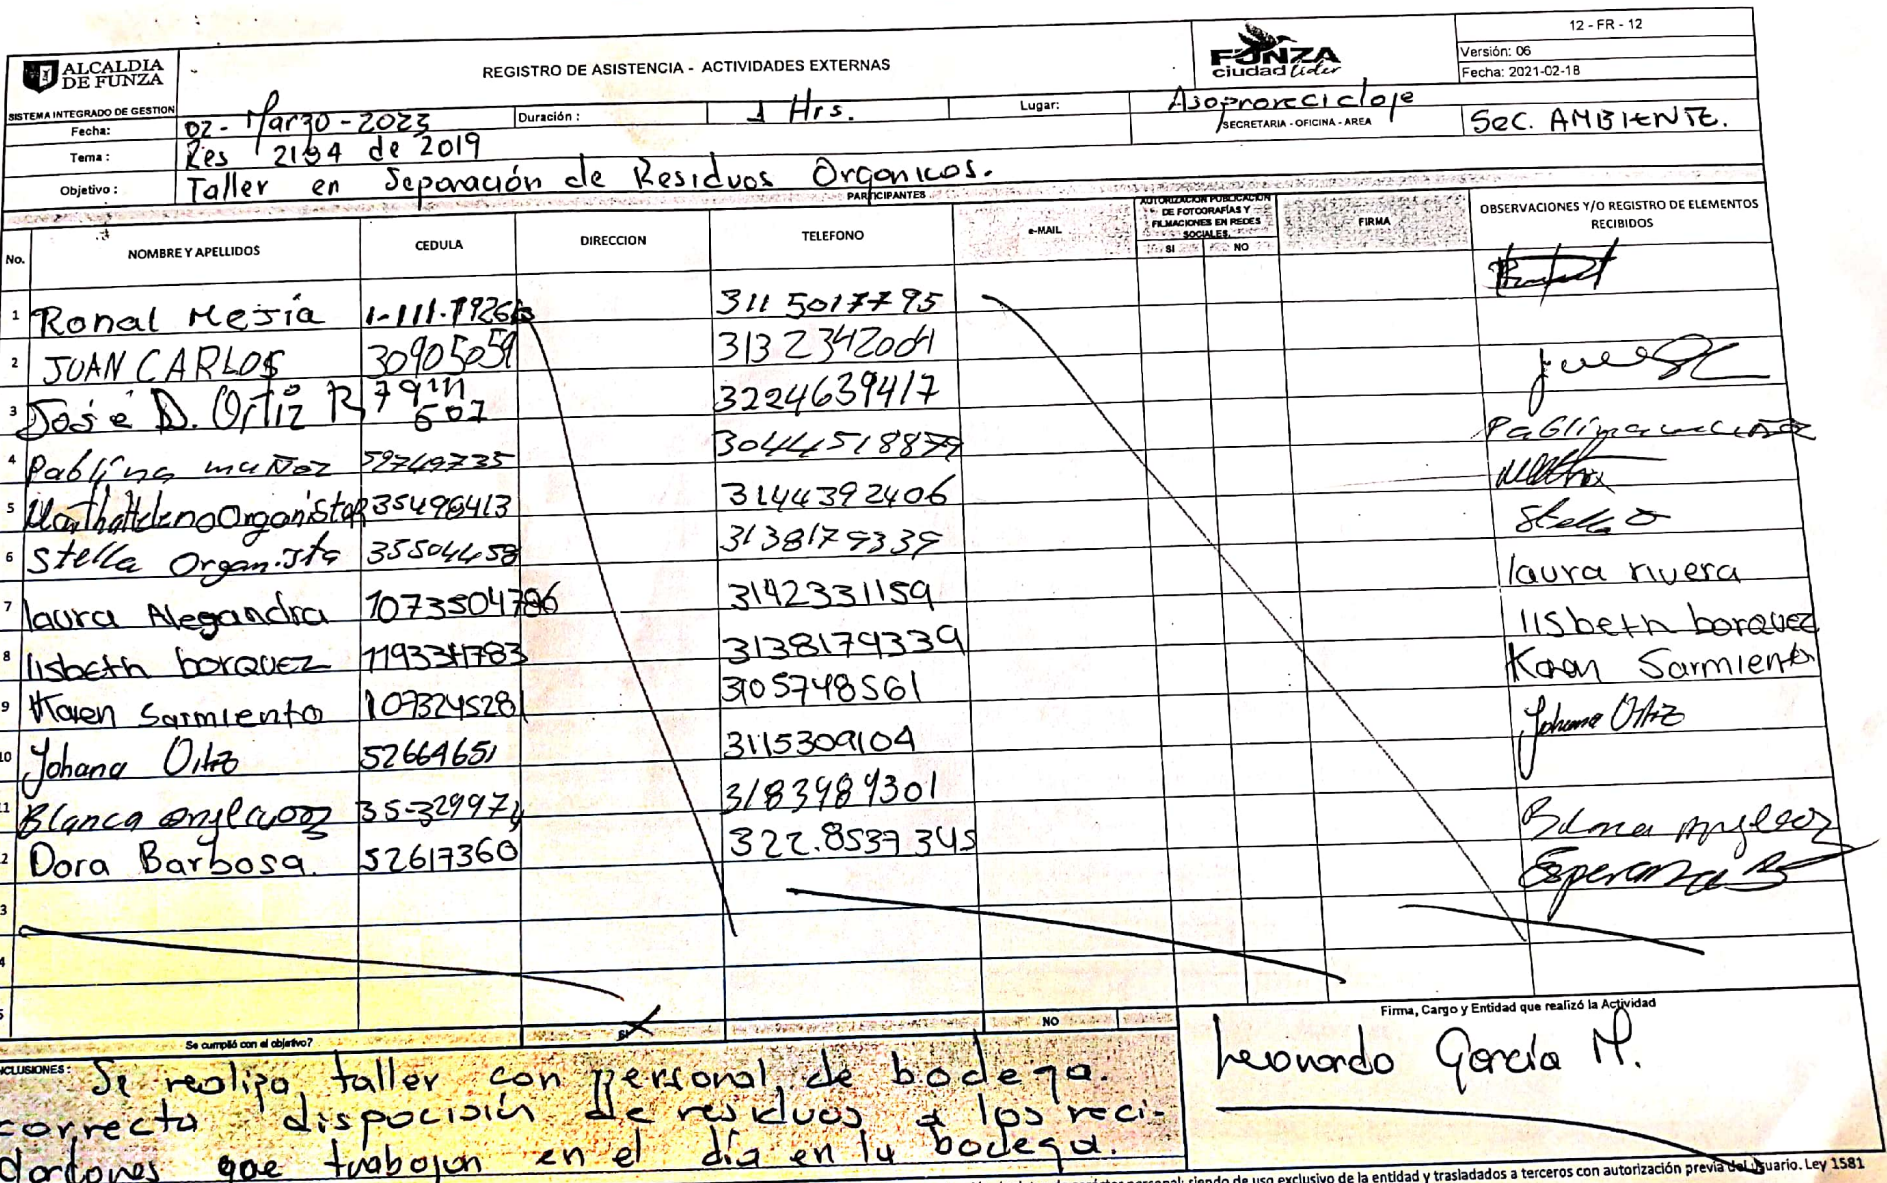 12 - FR - 12
ALCALDIA DE FUNZA
REGISTRO DE ASISTENCIA - ACTIVIDADES EXTERNAS
FUNZA
ciudad líder
Versión: 06
Fecha: 2021-02-18
SISTEMA INTEGRADO DE GESTION
Fecha: 02-Marzo-2023 Duración : 1 Hrs. Lugar: Asoprorecicloje
SECRETARIA - OFICINA - AREA Sec. AMBIENTE.
Tema : Res 2184 de 2019
Objetivo : Taller en Separación de Residuos Organicos.
PARTICIPANTES
No. NOMBRE Y APELLIDOS CEDULA DIRECCION TELEFONO e-MAIL AUTORIZACION PUBLICACION DE FOTOGRAFIAS Y FILMACIONES EN REDES SOCIALES. SI NO FIRMA OBSERVACIONES Y/O REGISTRO DE ELEMENTOS RECIBIDOS
1 Ronal Mejía 311 5017795
2 JUAN CARLOS 30905059 3132342004
3 José D. Ortiz R 79111607 3224639417
4 Pablina muñoz 59749735 30444518879 Pablina muñoz
5 Organista 35496413 3144392406
6 Stella Organista 35504458 3138179339 Stella O
7 laura Alegandra 1073504786 3142331159 laura rivera
8 lisbeth borquez 1193341783 3138179339 lisbeth borquez
9 Karen Sarmiento 107324528 3105748561 Karen Sarmiento
10 Johana Ortiz 52664651 3115309104 Johana Ortiz
11 Blanca 35-329974 3183989301
12 Dora Barbosa. 52617360 322.8537345 Esperanza B
3
4
5
Se cumplió con el objetivo? SI X NO
Firma, Cargo y Entidad que realizó la Actividad
CLUSIONES: Se realizo taller con personal de bodega.
correcta disposición de residuos a los reci-
que trabajan en el día en la bodega.
Leonardo García M.
siendo de uso exclusivo de la entidad y trasladados a terceros con autorización previa del usuario. Ley 1581